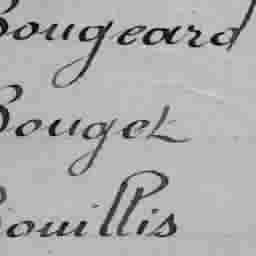 Bougeard
Bouget
Bouillis